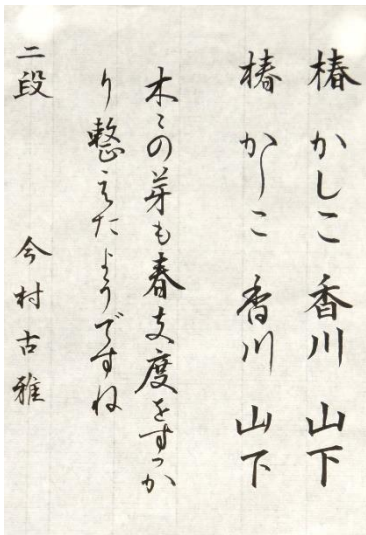 椿 かしこ 香川 山下
椿 かしこ 香川 山下
木々の芽も春支度をすっか
り整えたようですね
二段 今村古雅